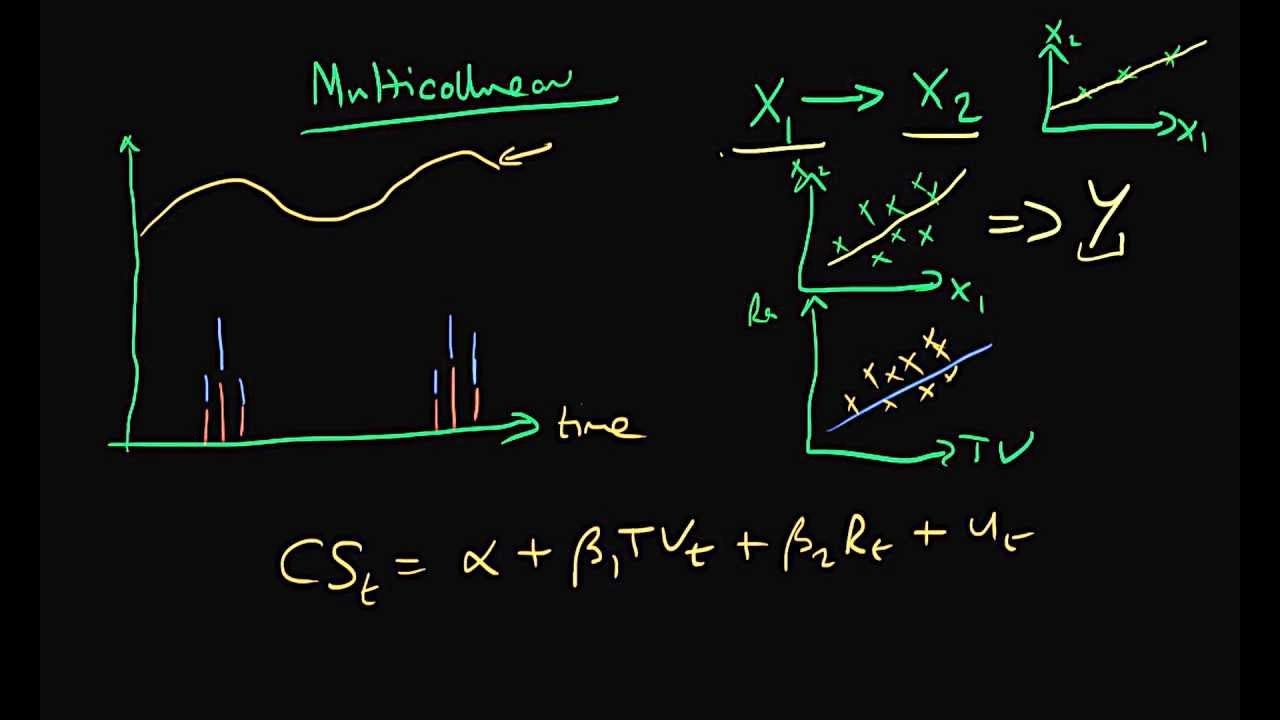 Multicollinear
X₁ → X₂
X₂
X₁
X₂
X₁
=> Y
R
TV
time
CSₜ = α + β₁TVₜ + β₂Rₜ + uₜ